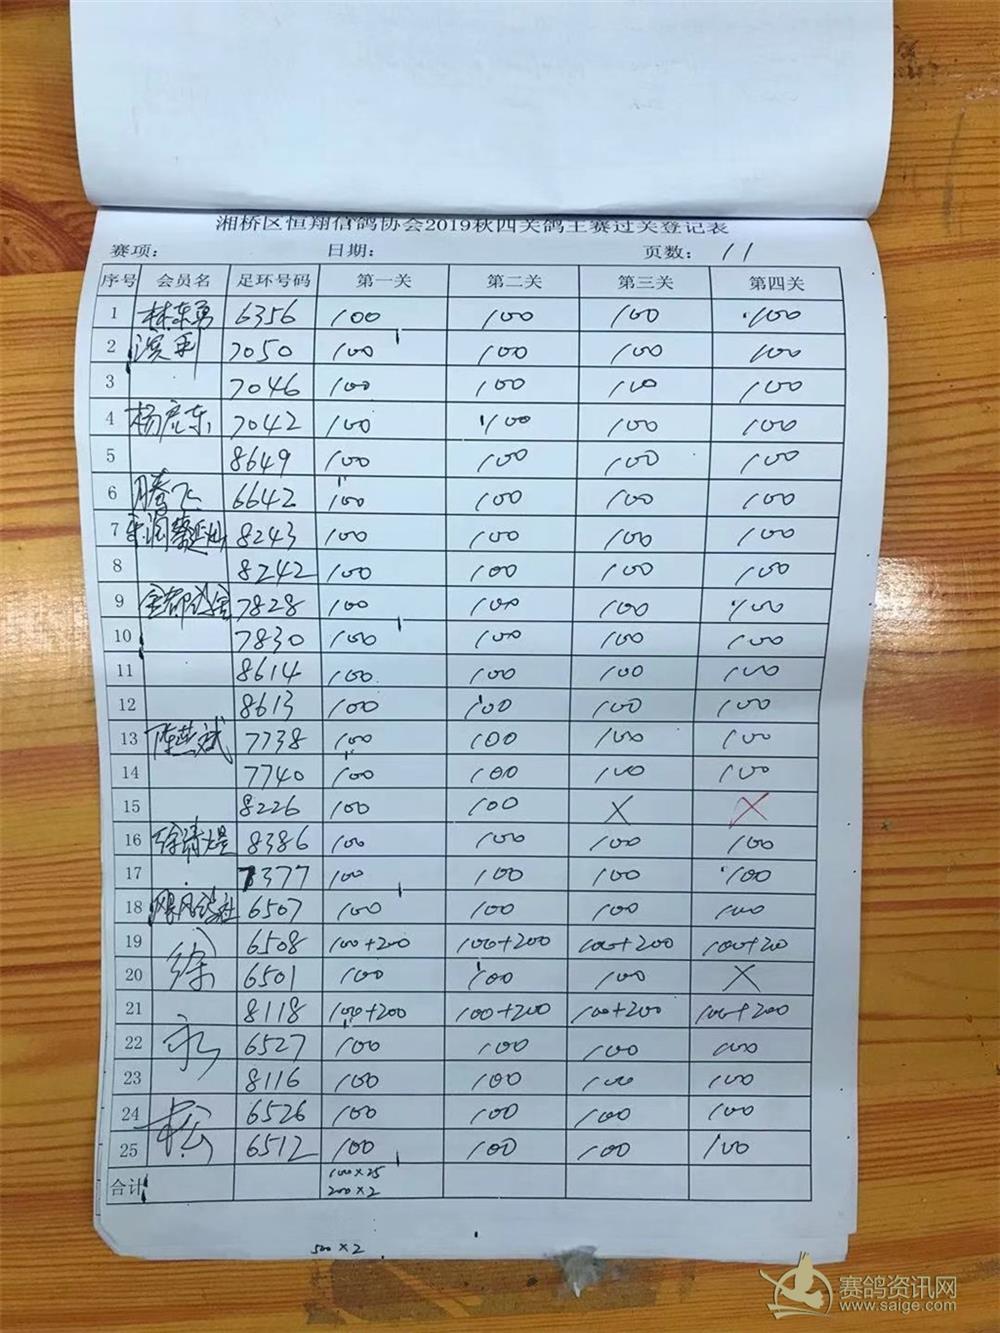 湘桥区恒翔信鸽协会2019秋四关鸽王赛过关登记表
赛项: 日期: 页数: 11
序号 会员名 足环号码 第一关 第二关 第三关 第四关
1 林东勇 6356 100 100 100 100
2 7050 100 100 100 100
3 7046 100 100 100 100
4 杨彦东 7042 100 100 100 100
5 8649 100 100 100 100
6 腾飞 6642 100 100 100 100
7 8243 100 100 100 100
8 8242 100 100 100 100
9 7828 100 100 100 100
10 7830 100 100 100 100
11 8614 100 100 100 100
12 8613 100 100 100 100
13 陈燕斌 7738 100 100 100 100
14 7740 100 100 100 100
15 8226 100 100 X X
16 8386 100 100 100 100
17 7377 100 100 100 100
18 6507 100 100 100 100
19 徐 6508 100+200 100+200 100+200 100+200
20 6501 100 100 100 X
21 8118 100+200 100+200 100+200 100+200
22 永 6527 100 100 100 100
23 8116 100 100 100 100
24 松 6526 100 100 100 100
25 6512 100 100 100 100
合计 100×25
200×2
500×2
赛鸽资讯网
www.saige.com